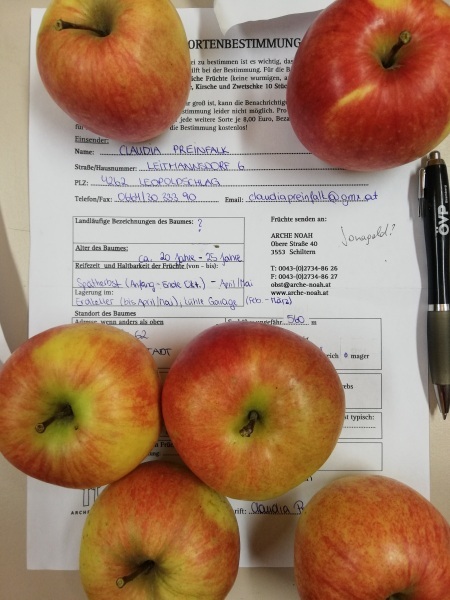 ORTENBESTIMMUNG
ei zu bestimmen ist es wichtig, das
ilft bei der Bestimmung. Für die B
liche Früchte (keine wurmigen, a
, Kirsche und Zwetschke 10 Stüc
groß ist, kann die Benachrichtig
estimmung leider nicht möglich. Pro
jede weitere Sorte je 8,00 Euro, Beza
die Bestimmung kostenlos!
Einsender:
Name: CLAUDIA PREINFALK
Straße/Hausnummer: LEITMANNSDORF 6
PLZ: 4262 LEOPOLDSCHLAG
Telefon/Fax: 0664/30 333 90 Email: claudiapreinfalk@gmx.at
Landläufige Bezeichnungen des Baumes: ?
?
Früchte senden an:
ARCHE NOAH
Obere Straße 40
3553 Schiltern
Jonagold?
Alter des Baumes:
ca. 20 Jahre - 25 Jahre
Reifezeit und Haltbarkeit der Früchte (von - bis):
Spätherbst (Anfang - Ende Okt.) - April/Mai
Lagerung im:
Erdkeller (bis April/Mai), kühle Garage (Feb. - März)
T: 0043-(0)2734-86 26
F: 0043-(0)2734-86 27
obst@arche-noah.at
www.arche-noah.at
Standort des Baumes
Adresse, wenn anders als oben
560 m
62
STADT
reich mager
typisch:
ARCHE
rift: Claudia P
ÖVP